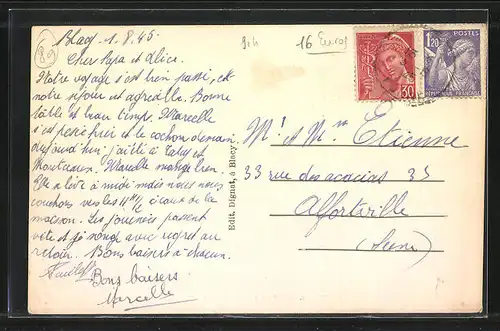 Blacy 1.8.45
Cher Papa et Alice.
Notre voyage s'est bien passé, et
notre séjour est agréable. Bonne
table et beau temps. Marcelle
s'est pesée hier et le cochon demain
aujourd'hui j'ai été à et
Montréal. Marcelle mange bien.
Elle se lève à midi mais nous nous
couchons vers les 11 à cause de la
moisson. Les journées passent
vite et je songe avec regret au
retour. Bons baisers à chacun.
Bons baisers
Marcelle
89
16 Euros
30
POSTES
1,20
RÉPUBLIQUE FRANÇAISE
Edit. Dignat, à Blacy
Mr et Mme Etienne
33 rue des acacias 33
Alfortville
(Seine)